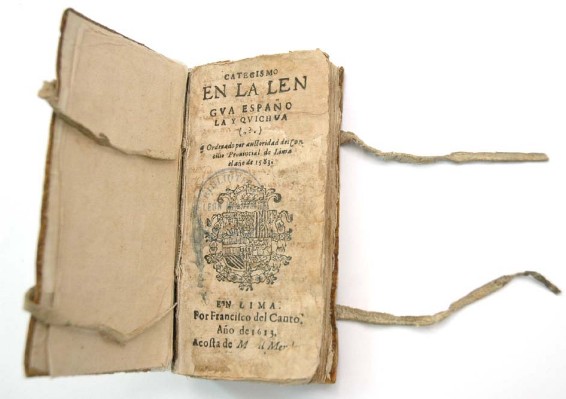 CATECISMO
EN LA LEN
GVA ESPAÑO
LA Y QVICHVA
(.?.)
¶ Ordenado por auctoridad del Con
cilio Prouincial de Lima
el año de 1583.
EN LIMA.
Por Francisco del Canto,
Año de 1613.
Acosta de